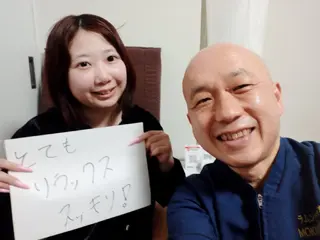 とても
リラックス
スッキリ!